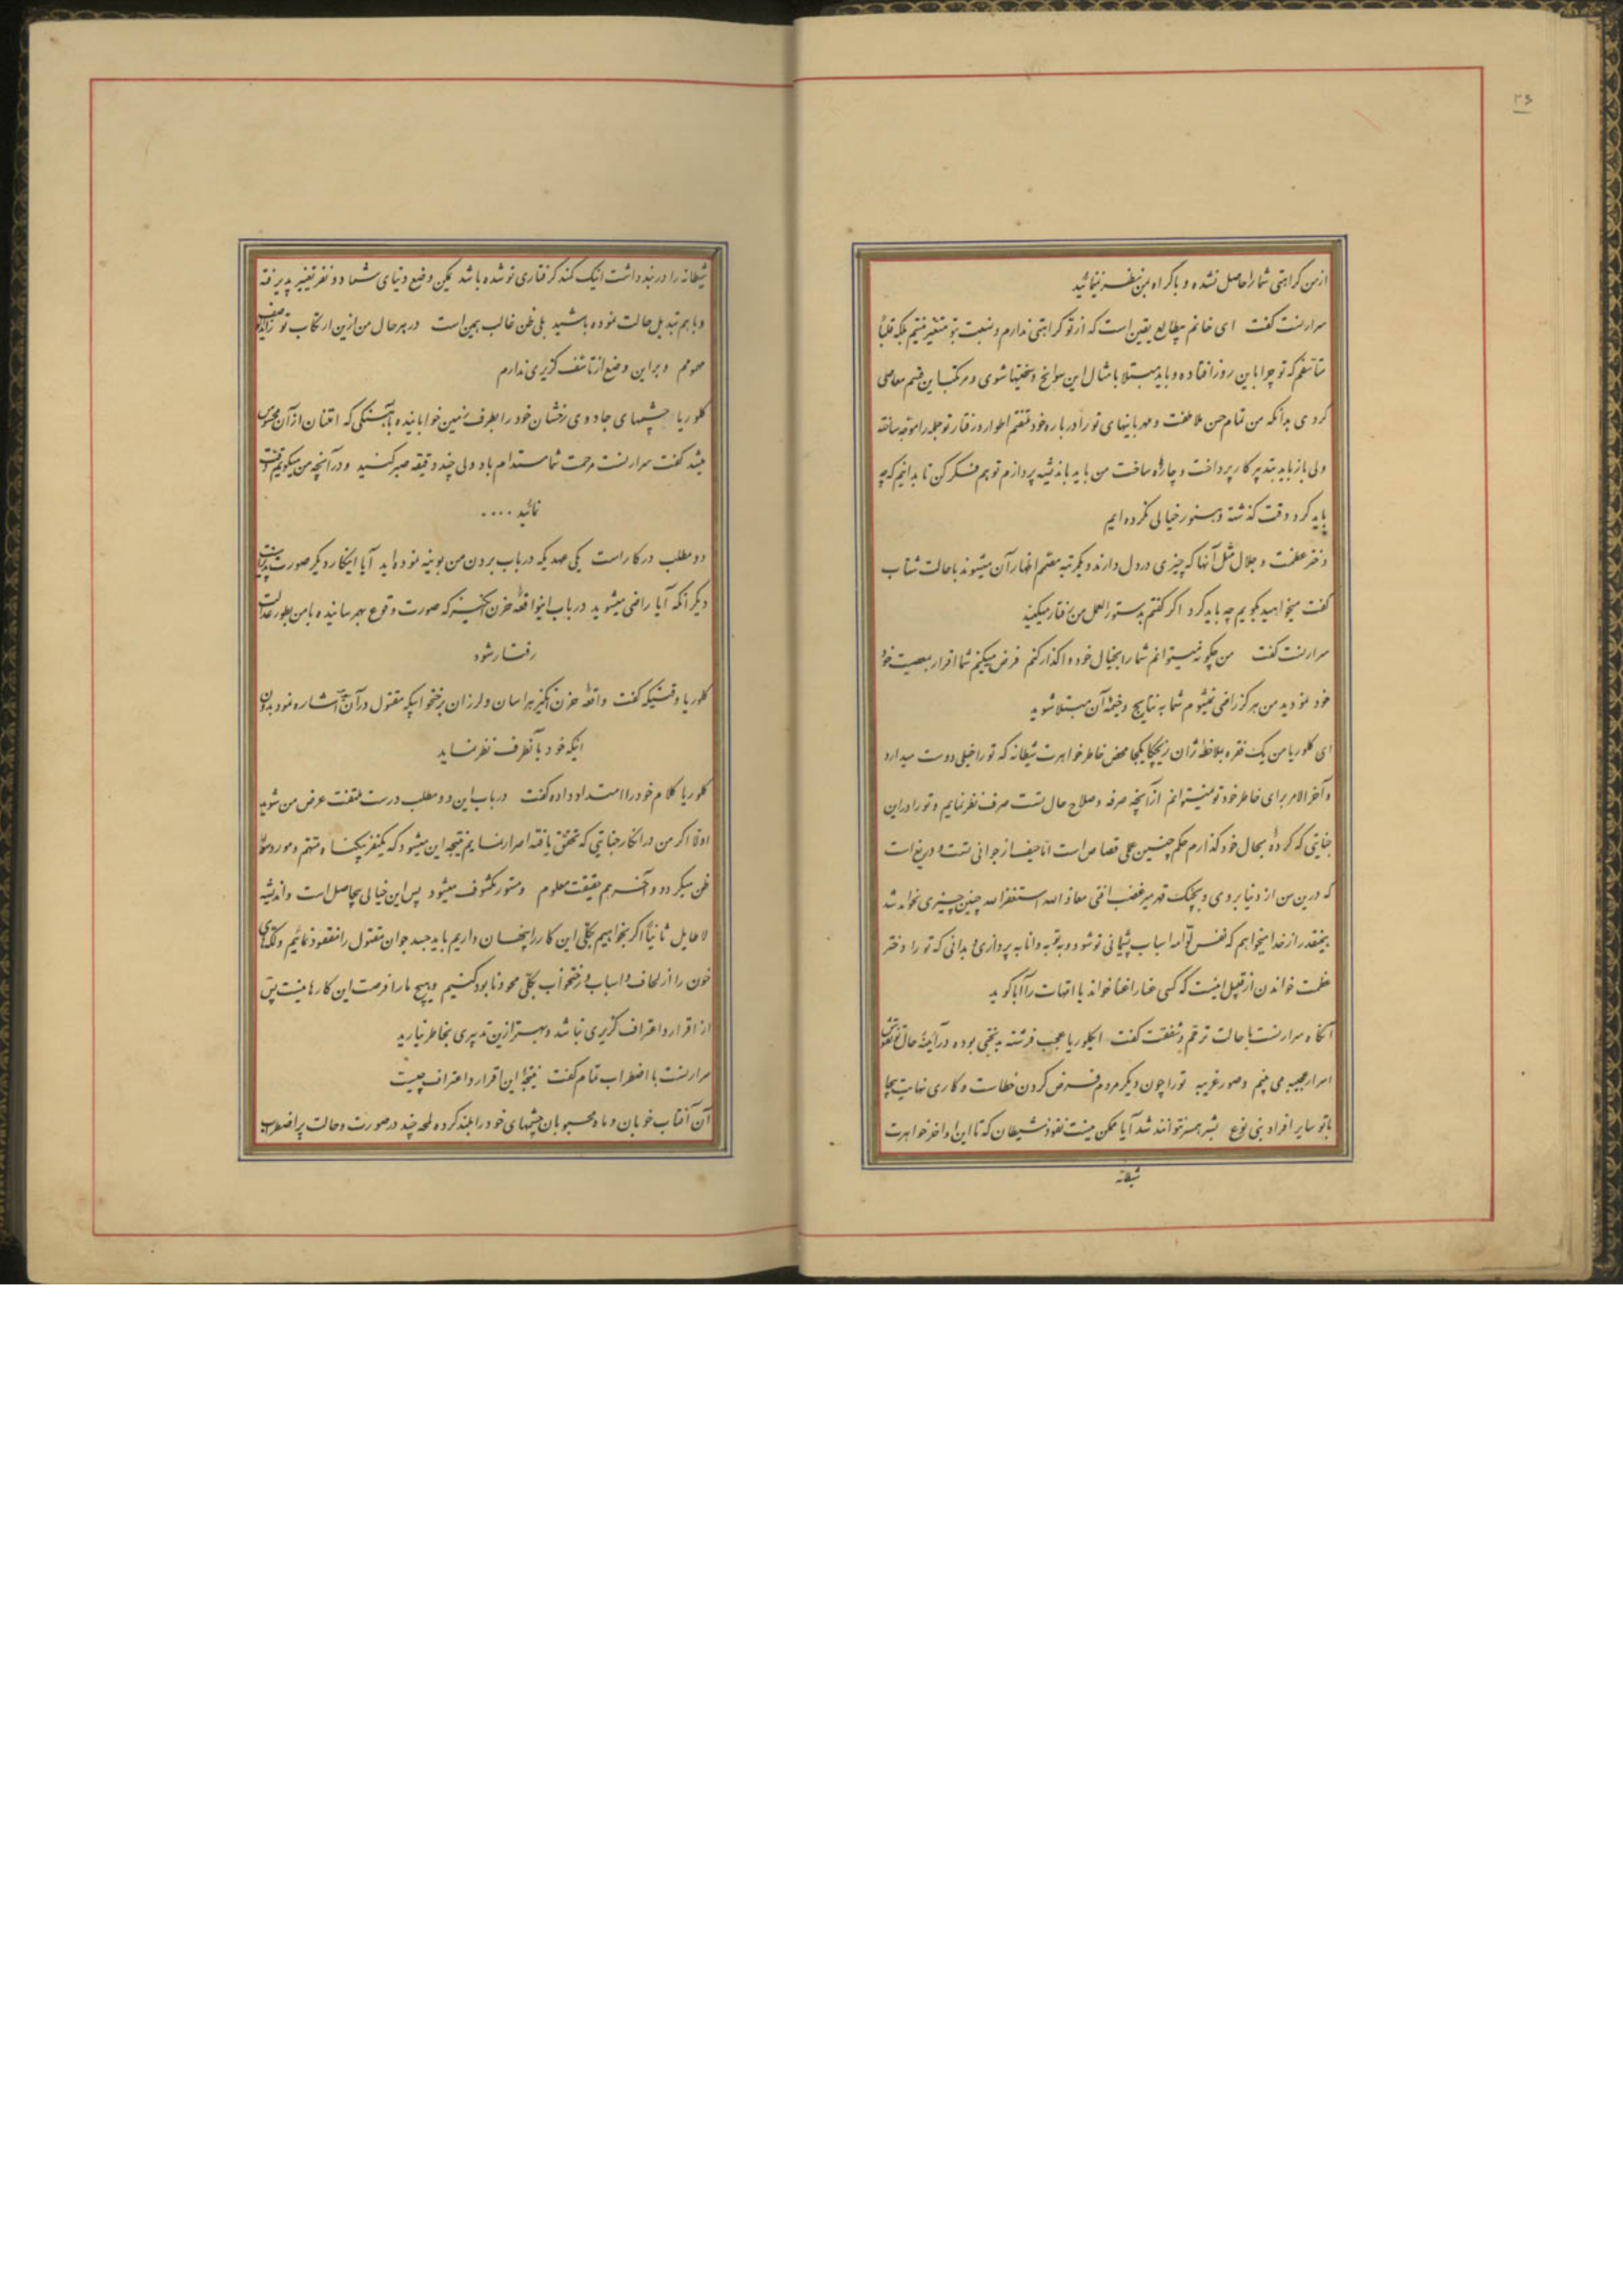 ۳۶
از من کراهتی شما را حاصل نشده و باکراه بمن نظر نینمائید
سرارنست گفت ای خانم بیطالع یقین است که از تو کراهتی ندارم و نسبت بتو متغیر نیستم بلکه قلباً
متأسفم که تو چرا باین روز افتاده و باید مبتلا بامثال این سوانح و سختیها شوی و مرتکب این قسم معاصی
کردی بدانکه من تمام حسن ملاطفت و مهربانیهای تو را درباره خود اطوار و رفتار تو جمله را
ولی باز باید بتدبیر کار پرداخت و چاره ساخت من باید باندیشه پردازم تو هم فکر کن تا بدانیم که چه
باید کرد وقت گذشته و هنوز خیالی نکرده ایم
دختر عظمت و جلال مثل آنها که چیزی در دل دارند و یکمرتبه مصمم اظهار آن میشوند با حالت شتاب
گفت میخواهید بگویم چه باید کرد اگر گفتم بدستورالعمل من رفتار میکنید
سرارنست گفت من چگونه میتوانم شما را بخیال خود واگذار کنم فرض میکنم شما اقرار بمعصیت خود
خود نمودید من هرگز راضی نمیشوم شما به نتایج وخیمهٔ آن مبتلا شوید
ای کلوریا من یک فقره بملاحظه ژان ریچکا یکجا محض خاطر خواهرت شیطانه که تو را خیلی دوست میدارد
و آخرالامر برای خاطر خود تو نمیتوانم از آنچه صرفه و صلاح حال تست صرف نظر نمایم و تو را در این
جنایتی که کرده بحال خود گذارم حکم چنین عملی قصاص است اما حیف از جوانی تست و دریغ است
که درین سن از دنیا بروی و بچنگ قهر میرغضب افتی معاذ الله استغفرالله چنین چیزی نخواهد شد
بنقدر از خدا میخواهم که نفس لوامه اسباب پشیمانی تو شود و به توبه و انابه پردازی و بدانی که تو را دختر
عظمت خواندن از قبیل اینست که کسی عنا را غنا خواند یا امّهات را آبا گوید
آنگاه سرارنست با حالت ترحم و شفقت گفت ایکلوریا عجب فرشته بدبختی بوده در آئینهٔ حال تو
اسرار عجیبه می بینم و صور غریبه تو را چون دیگر مردم فرض کردن خطاست و کاری نهایت بیجا
با تو سایر افراد بنی نوع بشر همسر نتوانند شد آیا ممکن نیست نفوذ شیطان که تا این اواخر خواهرت
شیطانه
شیطانه را در بند داشت اینک کمند گرفتاری تو شده باشد یمکن وضع دنیای شما دو نفر تغییر پذیرفته
و با هم تبدیل حالت نموده باشید بلی ظن غالب همین است در هر حال من ازین ارتکاب تو
مهمومم و بر این وضع از تأسف گزیری ندارم
کلوریا چشمهای جادوی رخشان خود را بطرف زمین خوابانیده با آهنگی که امتنان از آن محسوس
میشد گفت سرارنست مرحمت شما مستدام باد ولی چند دقیقه صبر کنید و در آنچه من میگویم دقت
نمائید ....
دو مطلب در کار است یکی عهدیکه در باب بردن من بوینه نموده اید آیا اینکار دیگر صورت
دیگر آنکه آیا راضی میشوید در باب اینواقعهٔ حزن انگیز که صورت وقوع بهم رسانیده با من بطور عدالت
رفتار شود
کلوریا وقتیکه گفت واقعهٔ حزن انگیز هراسان و لرزان برختخوابیکه مقتول در آن است اشاره نمود بدون
اینکه خود بآنطرف نظر نماید
کلوریا کلام خود را امتداد داده گفت در باب این دو مطلب درست ملتفت عرض من شوید
اولا اگر من در انکار جنایتی که تحقق یافته اصرار نمایم نتیجه این میشود که یکنفر بیگناه متهم و مورد سوء
ظن میگردد و آخر هم حقیقت معلوم و مستور مکشوف میشود پس این خیالی بیحاصل است و اندیشه
لاطایل ثانیاً اگر بخواهیم بکلی این کار را پنهان داریم باید جسد جوان مقتول را مفقود نمائیم و لکهای
خون را از لحاف و اسباب و رختخواب بکلی محو و نابود کنیم و هیچ ما را فرصت این کارها نیست پس
از اقرار و اعتراف گزیری نباشد و بهتر ازین تدبیری بخاطر نیارید
سرارنست با اضطراب تمام گفت نتیجهٔ این اقرار و اعتراف چیست
آن آفتاب خوبان و ماه محبوبان چشمهای خود را بلند کرده لمحه چند در صورت و حالت پر اضطراب